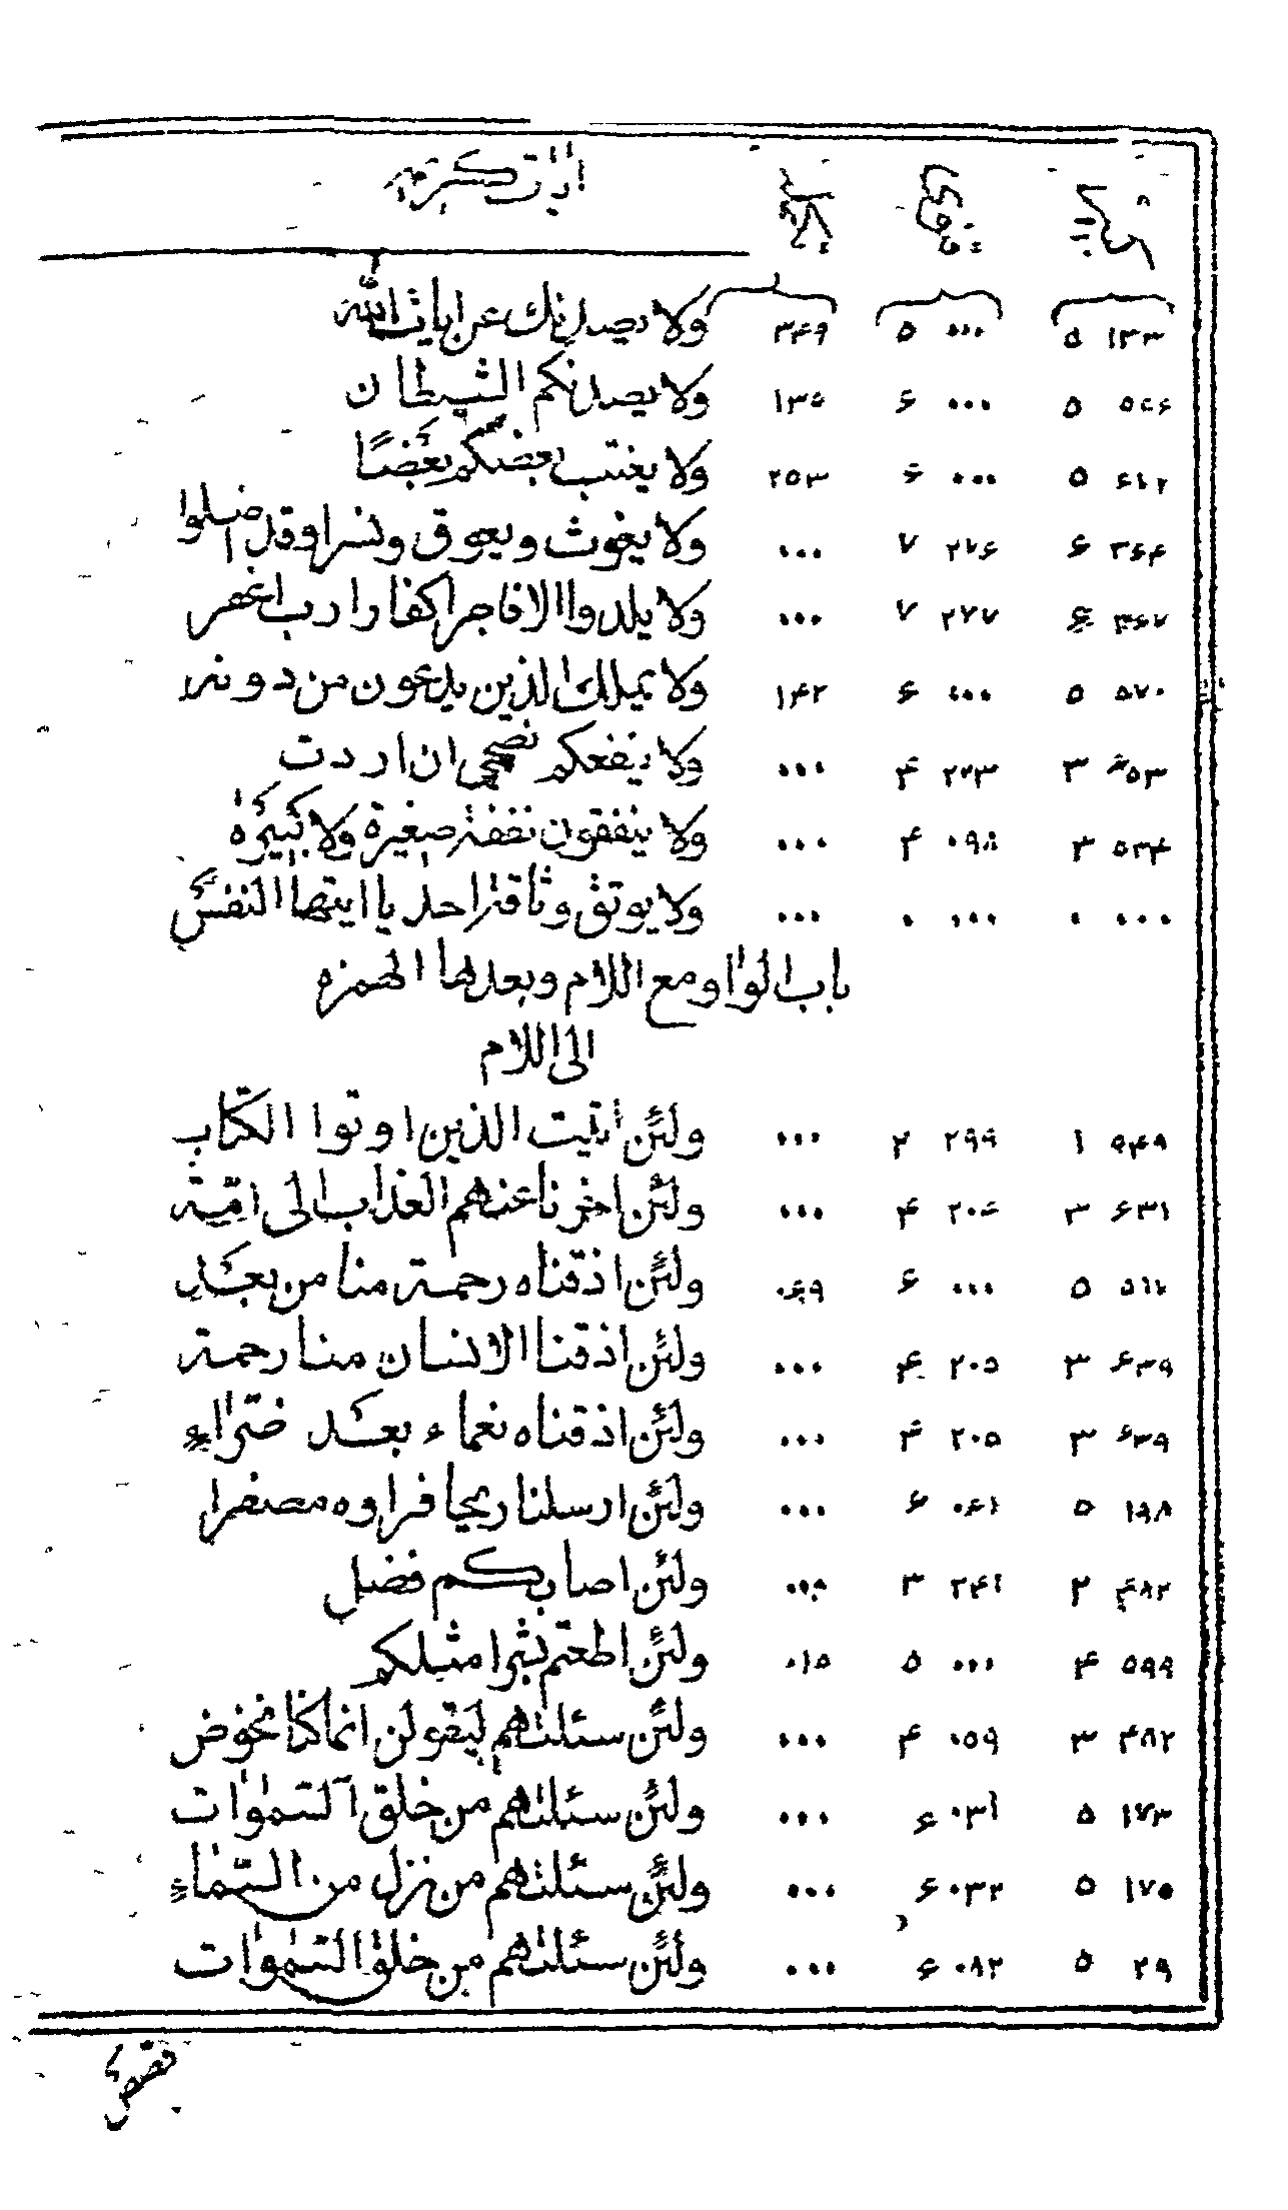 ایات کریمه
۱۳۳ ۵ ۰۰۰ ۵ ۳۴۹ ولا یصدنك عن ایات الله
۵ ۰۰۰ ۶ ۱۳۵ ولا یصدنكم الشیطان
۶۱۲ ۵ ۰۰۰ ۶ ۲۵۳ ولا یغتب بعضكم بعضًا
۳۶۴ ۶ ۲۷۶ ۷ ۰۰۰ ولا یغوث ویعوق ونسرا وقد اضلوا
۳۶۷ ۶ ۲۷۷ ۷ ۰۰۰ ولا یلدوا الا فاجرا كفارا رب اغفر
۵۷۰ ۵ ۰۰۰ ۶ ۱۴۲ ولا یملك الذین یدعون من دونه
۳ ۴ ۰۰۰ ولا ینفعكم نصحی ان اردت
۵۳۴ ۳ ۰۹۸ ۴ ۰۰۰ ولا ینفقون نفقة صغیرة ولا كبیرة
۰۰۰ ۰ ۰۰۰ ۰ ۰۰۰ ولا یوثق وثاقه احد یا ایتها النفس
باب الواو مع اللام وبعدها الهمزه
الی اللام
۹۴۹ ۱ ۲۹۹ ۲ ۰۰۰ ولئن اتیت الذین اوتوا الكتاب
۶۳۱ ۳ ۴ ۰۰۰ ولئن اخرنا عنهم العذاب الی امّة
۵ ۰۰۰ ۶ ۰۶۹ ولئن اذقناه رحمة منا من بعد
۶۳۹ ۳ ۲۰۵ ۴ ۰۰۰ ولئن اذقنا الانسان منا رحمة
۶۳۹ ۳ ۲۰۵ ۴ ۰۰۰ ولئن اذقناه نعماء بعد ضرّاء
۱۹۸ ۵ ۰۶۱ ۶ ۰۰۰ ولئن ارسلنا ریحا فراوه مصفرا
۴۸۲ ۲ ۲۴۱ ۳ ۰۰۰ ولئن اصابكم فضل
۵۹۹ ۴ ۰۰۰ ۵ ۰۱۵ ولئن اطعتم بشرا مثلكم
۴۸۲ ۳ ۰۵۹ ۴ ۰۰۰ ولئن سئلتهم لیقولن انما كنا نخوض
۱۷۳ ۵ ۰۳۱ ۶ ۰۰۰ ولئن سئلتهم من خلق السّموات
۱۷۵ ۵ ۰۳۲ ۶ ۰۰۰ ولئن سئلتهم من نزل من السّماء
۲۹ ۵ ۰۸۲ ۶ ۰۰۰ ولئن سئلتهم من خلق السّموات